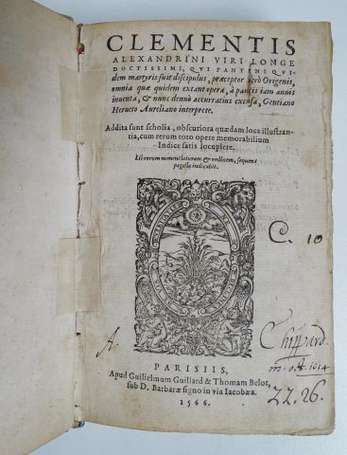 CLEMENTIS
ALEXANDRINI VIRI LONGE
DOCTISSIMI, QVI PANTENI QVI-
dem martyris fuit discipulus, præceptor verò Origenis,
omnia quæ quidem extant opera, à paucis iam annis
inuenta, & nunc denuò accuratiùs excusa, Gentiano
Herueto Aureliano interprete.
Addita sunt scholia, obscuriora quædam loca illustran-
tia, cum rerum toto opere memorabilium
Indice satis locuplete.
Librorum nomenclaturam & ordinem, sequens
pagella indicabit.
C. 10
A.
22.26.
PARISIIS,
Apud Guilielmum Guillard & Thomam Belot,
sub D. Barbaræ signo in via Iacobæa.
1566.